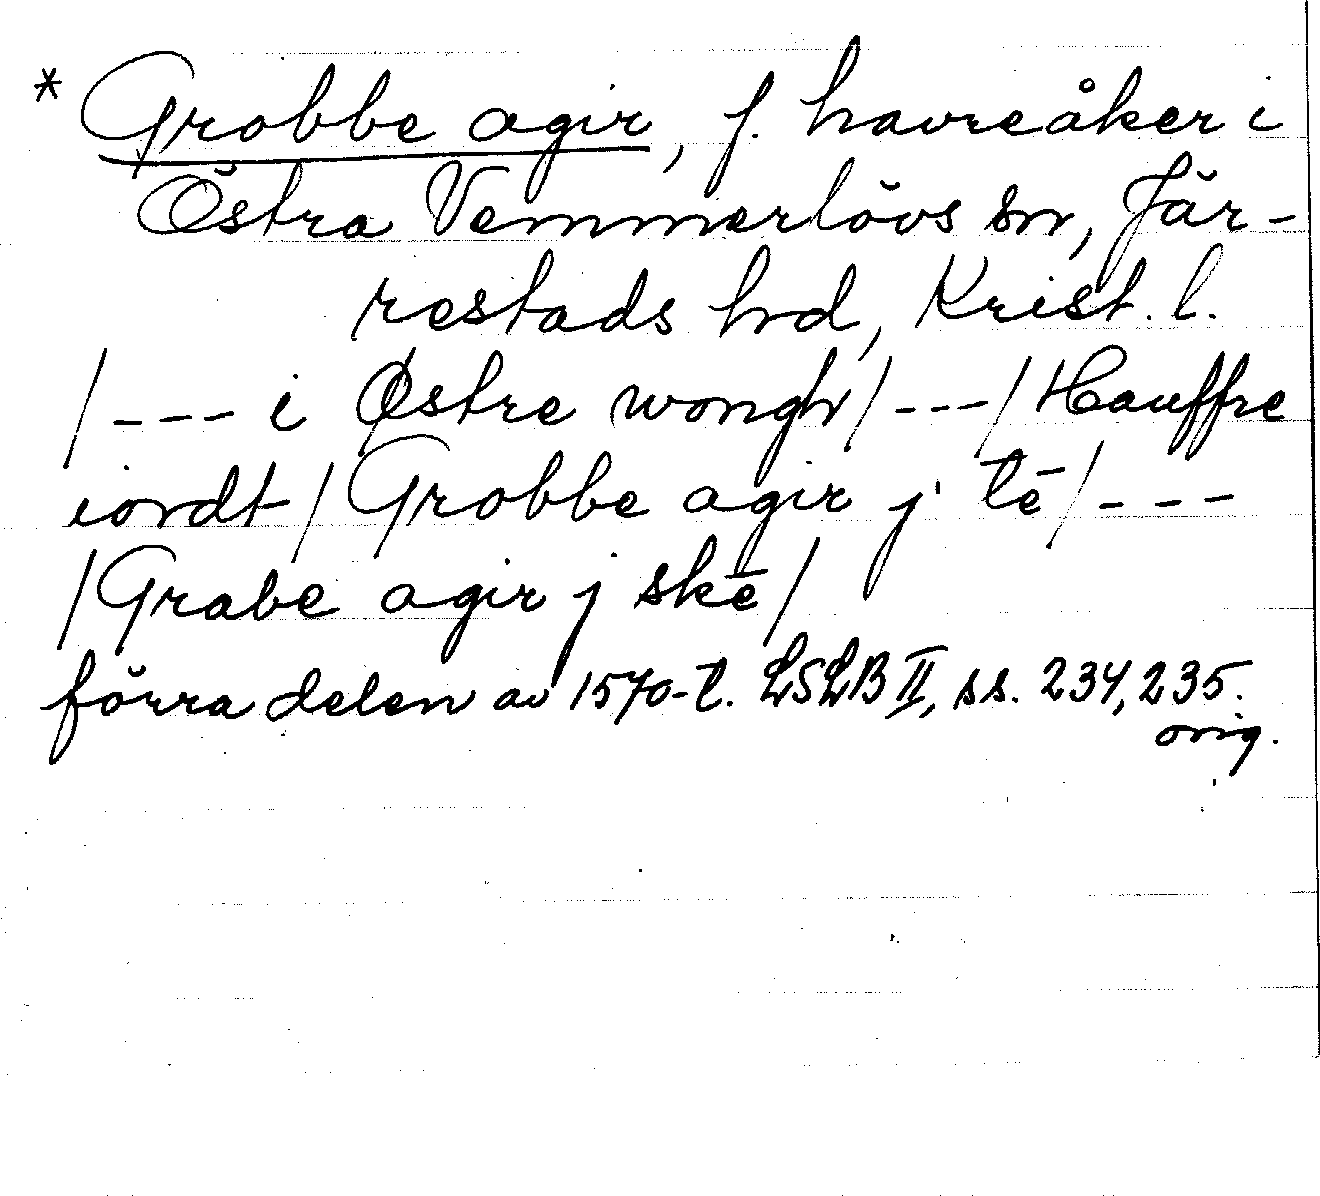 * Grobbe agir, f. havreåker i
Östra Vemmerlövs sn, Jär-
restads hd, Krist. l.
/--- i Østre wongh/---/Hauffre
iordt/Grobbe agir j tē/---
/Grabe agir j skē/
förra delen av 1570-t. LSLB II, ss. 234, 235.
orig.